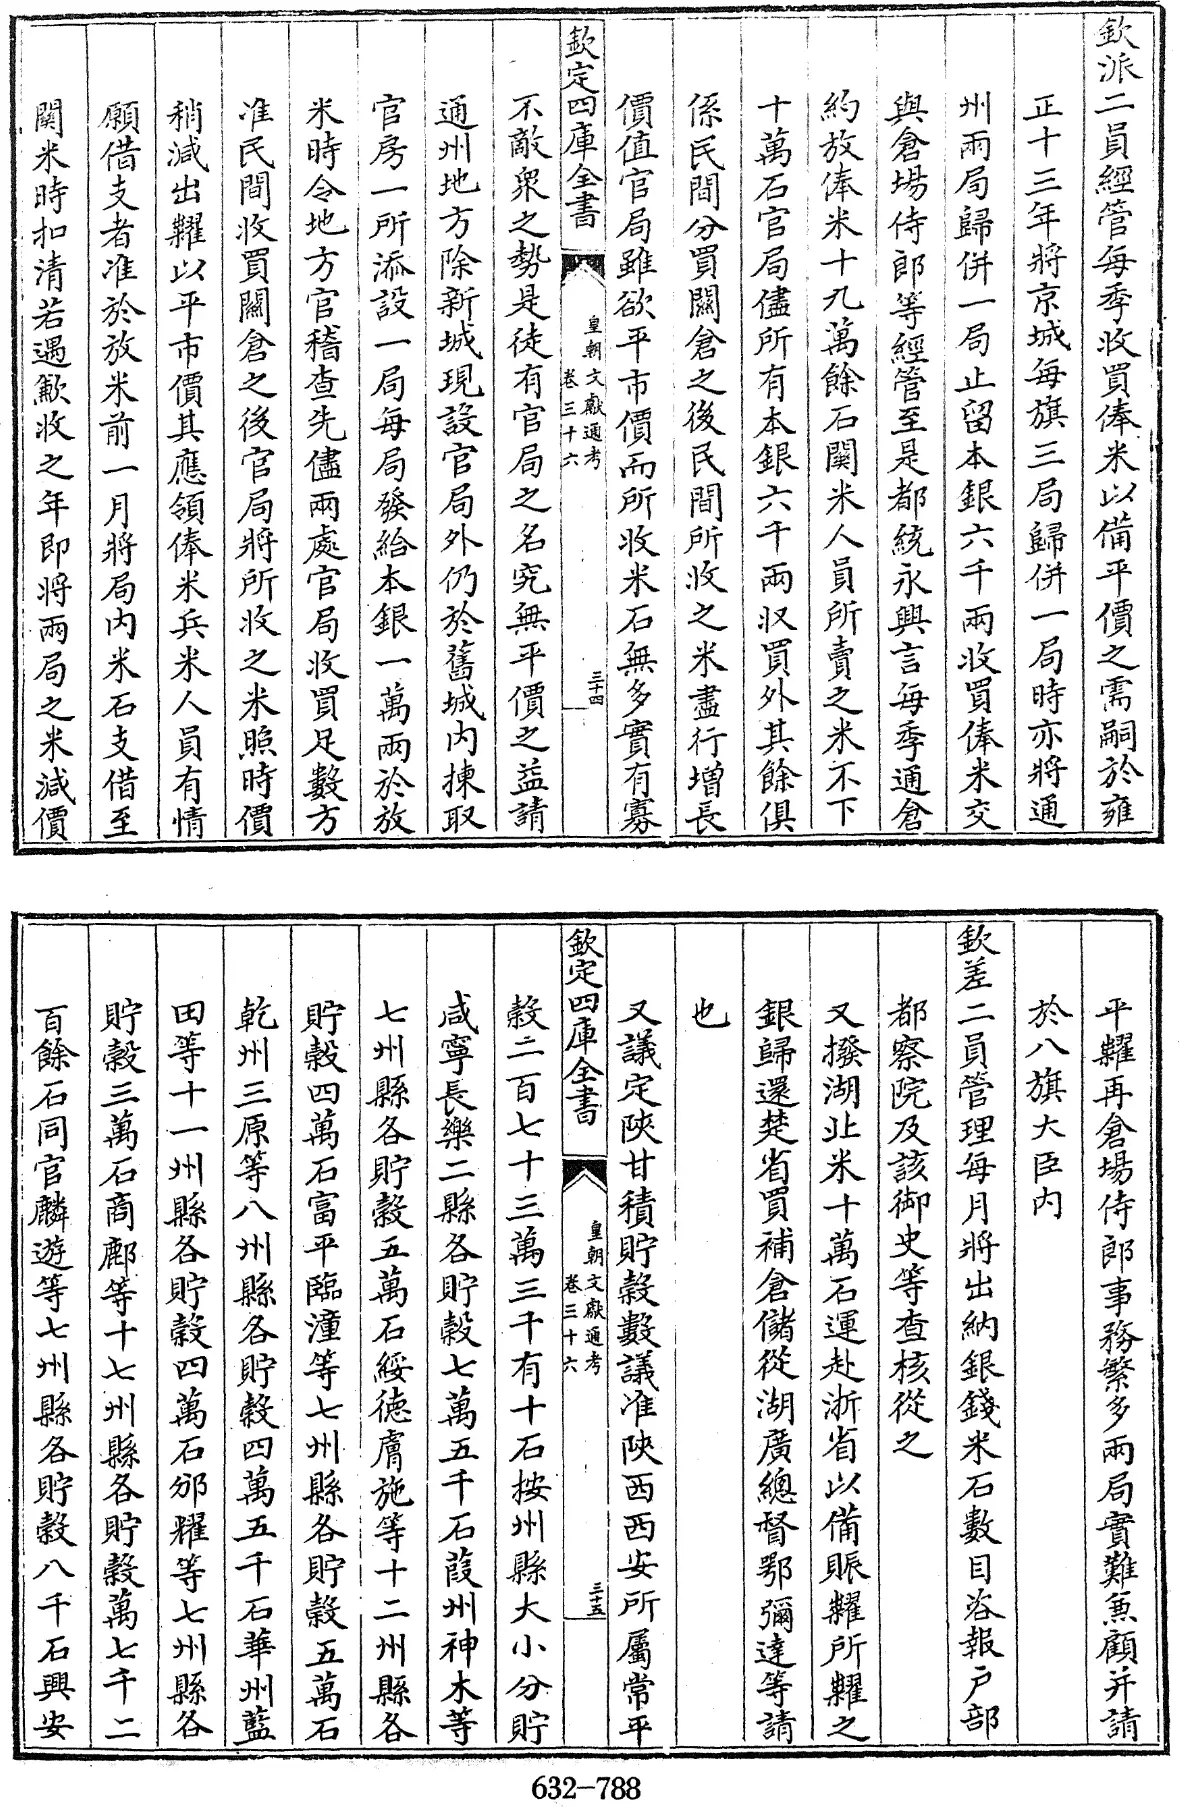 欽派二員經管每季收買俸米以備平價之需嗣於雍
正十三年將京城每旗三局歸併一局時亦將通
州兩局歸併一局止留本銀六千兩收買俸米交
與倉場侍郎等經管至是都統永興言每季通倉
約放俸米十九萬餘石關米人員所賣之米不下
十萬石官局儘所有本銀六千兩収買外其餘俱
係民間分買關倉之後民間所收之米盡行增長
價值官局雖欲平市價而所收米石無多實有寡
欽定四庫全書
皇朝文獻通考
卷三十六
三十四
不敵衆之勢是徒有官局之名究無平價之益請
通州地方除新城現設官局外仍於舊城内揀取
官房一所添設一局每局發給本銀一萬兩於放
米時令地方官稽查先儘兩處官局收買足數方
准民間收買關倉之後官局將所收之米照時價
稍減出糶以平市價其應領俸米兵米人員有情
願借支者准於放米前一月將局内米石支借至
關米時扣清若遇歉收之年即將兩局之米減價
平糶再倉場侍郎事務繁多兩局實難兼顧并請
於八旗大臣内
欽差二員管理每月將出納銀錢米石數目咨報戶部
都察院及該御史等查核從之
又撥湖北米十萬石運赴浙省以備賑糶所糶之
銀歸還楚省買補倉儲從湖廣總督鄂彌達等請
也
又議定陝甘積貯穀數議准陝西西安所屬常平
欽定四庫全書
皇朝文獻通考
卷三十六
三十五
穀二百七十三萬三千有十石按州縣大小分貯
咸寧長樂二縣各貯穀七萬五千石葭州神木等
七州縣各貯穀五萬石綏德膚施等十二州縣各
貯穀四萬石富平臨潼等七州縣各貯穀五萬石
乾州三原等八州縣各貯穀四萬五千石華州藍
田等十一州縣各貯穀四萬石邠耀等七州縣各
貯穀三萬石商鄜等十七州縣各貯穀萬七千二
百餘石同官麟遊等七州縣各貯穀八千石興安
632-788